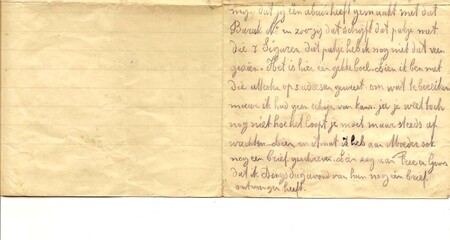 nog dat jij een abuis heeft gemaakt met dat
Barak No en zoo jij dat schrijft dat pakje met
die 7 Sigaren, dat pakje heb ik nog niet dat
gezien. Het is hier een gekkeboel. Lien ik ben met
die allen op adressen geweest om wat te bereiken
maar ik had geen schijn van kans. ja je weet toch
nog niet hoe het loopt je moet maar steeds af
wachten. Lien en ik heb aan Moeder ook
nog een brief geschreven. Lien zeg aan Kee en
dat ik Dingsdagavond van hun nog een brief
ontvangen heeft.